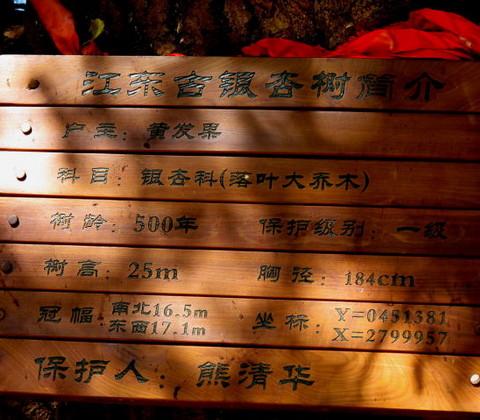 江东古银杏树简介
户主：黄发果
科目：银杏科(落叶大乔木)
树龄：500年 保护级别：一级
树高：25m 胸径：184cm
冠幅：南北16.5m 东西17.1m 坐标：Y=0451381 X=2799957
保护人：熊清华